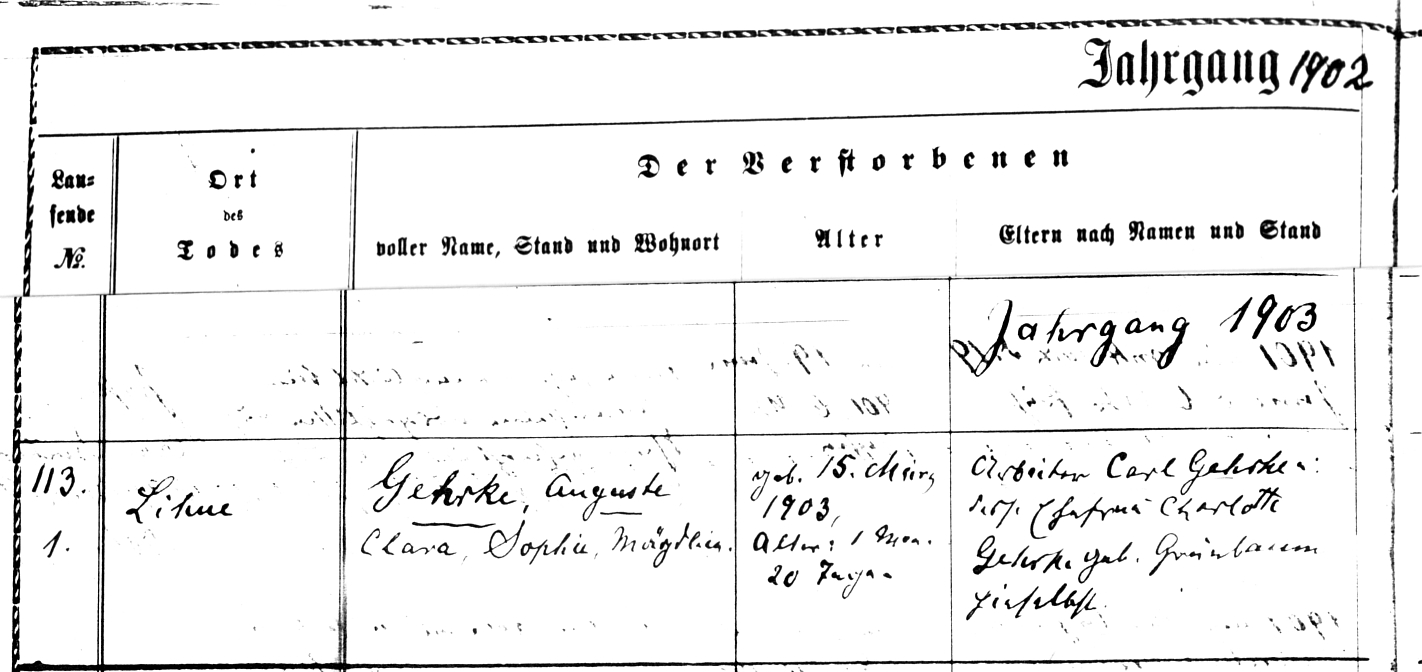 Jahrgang 1902
Der Verstorbenen
Lau=
fende
No.
Ort
des
Todes
voller Name, Stand und Wohnort
Alter
Eltern nach Namen und Stand
Jahrgang 1903
113.
1.
Gehrke, Auguste
Clara, Sophie, Mägdlein.
geb. 15. März
1903,
Alter: 1 Mon.
20 Tage.
Arbeiter Carl Gehrke u.
Ehefrau Charlotte
Gehrke geb. Grünbaum
hieselbst.